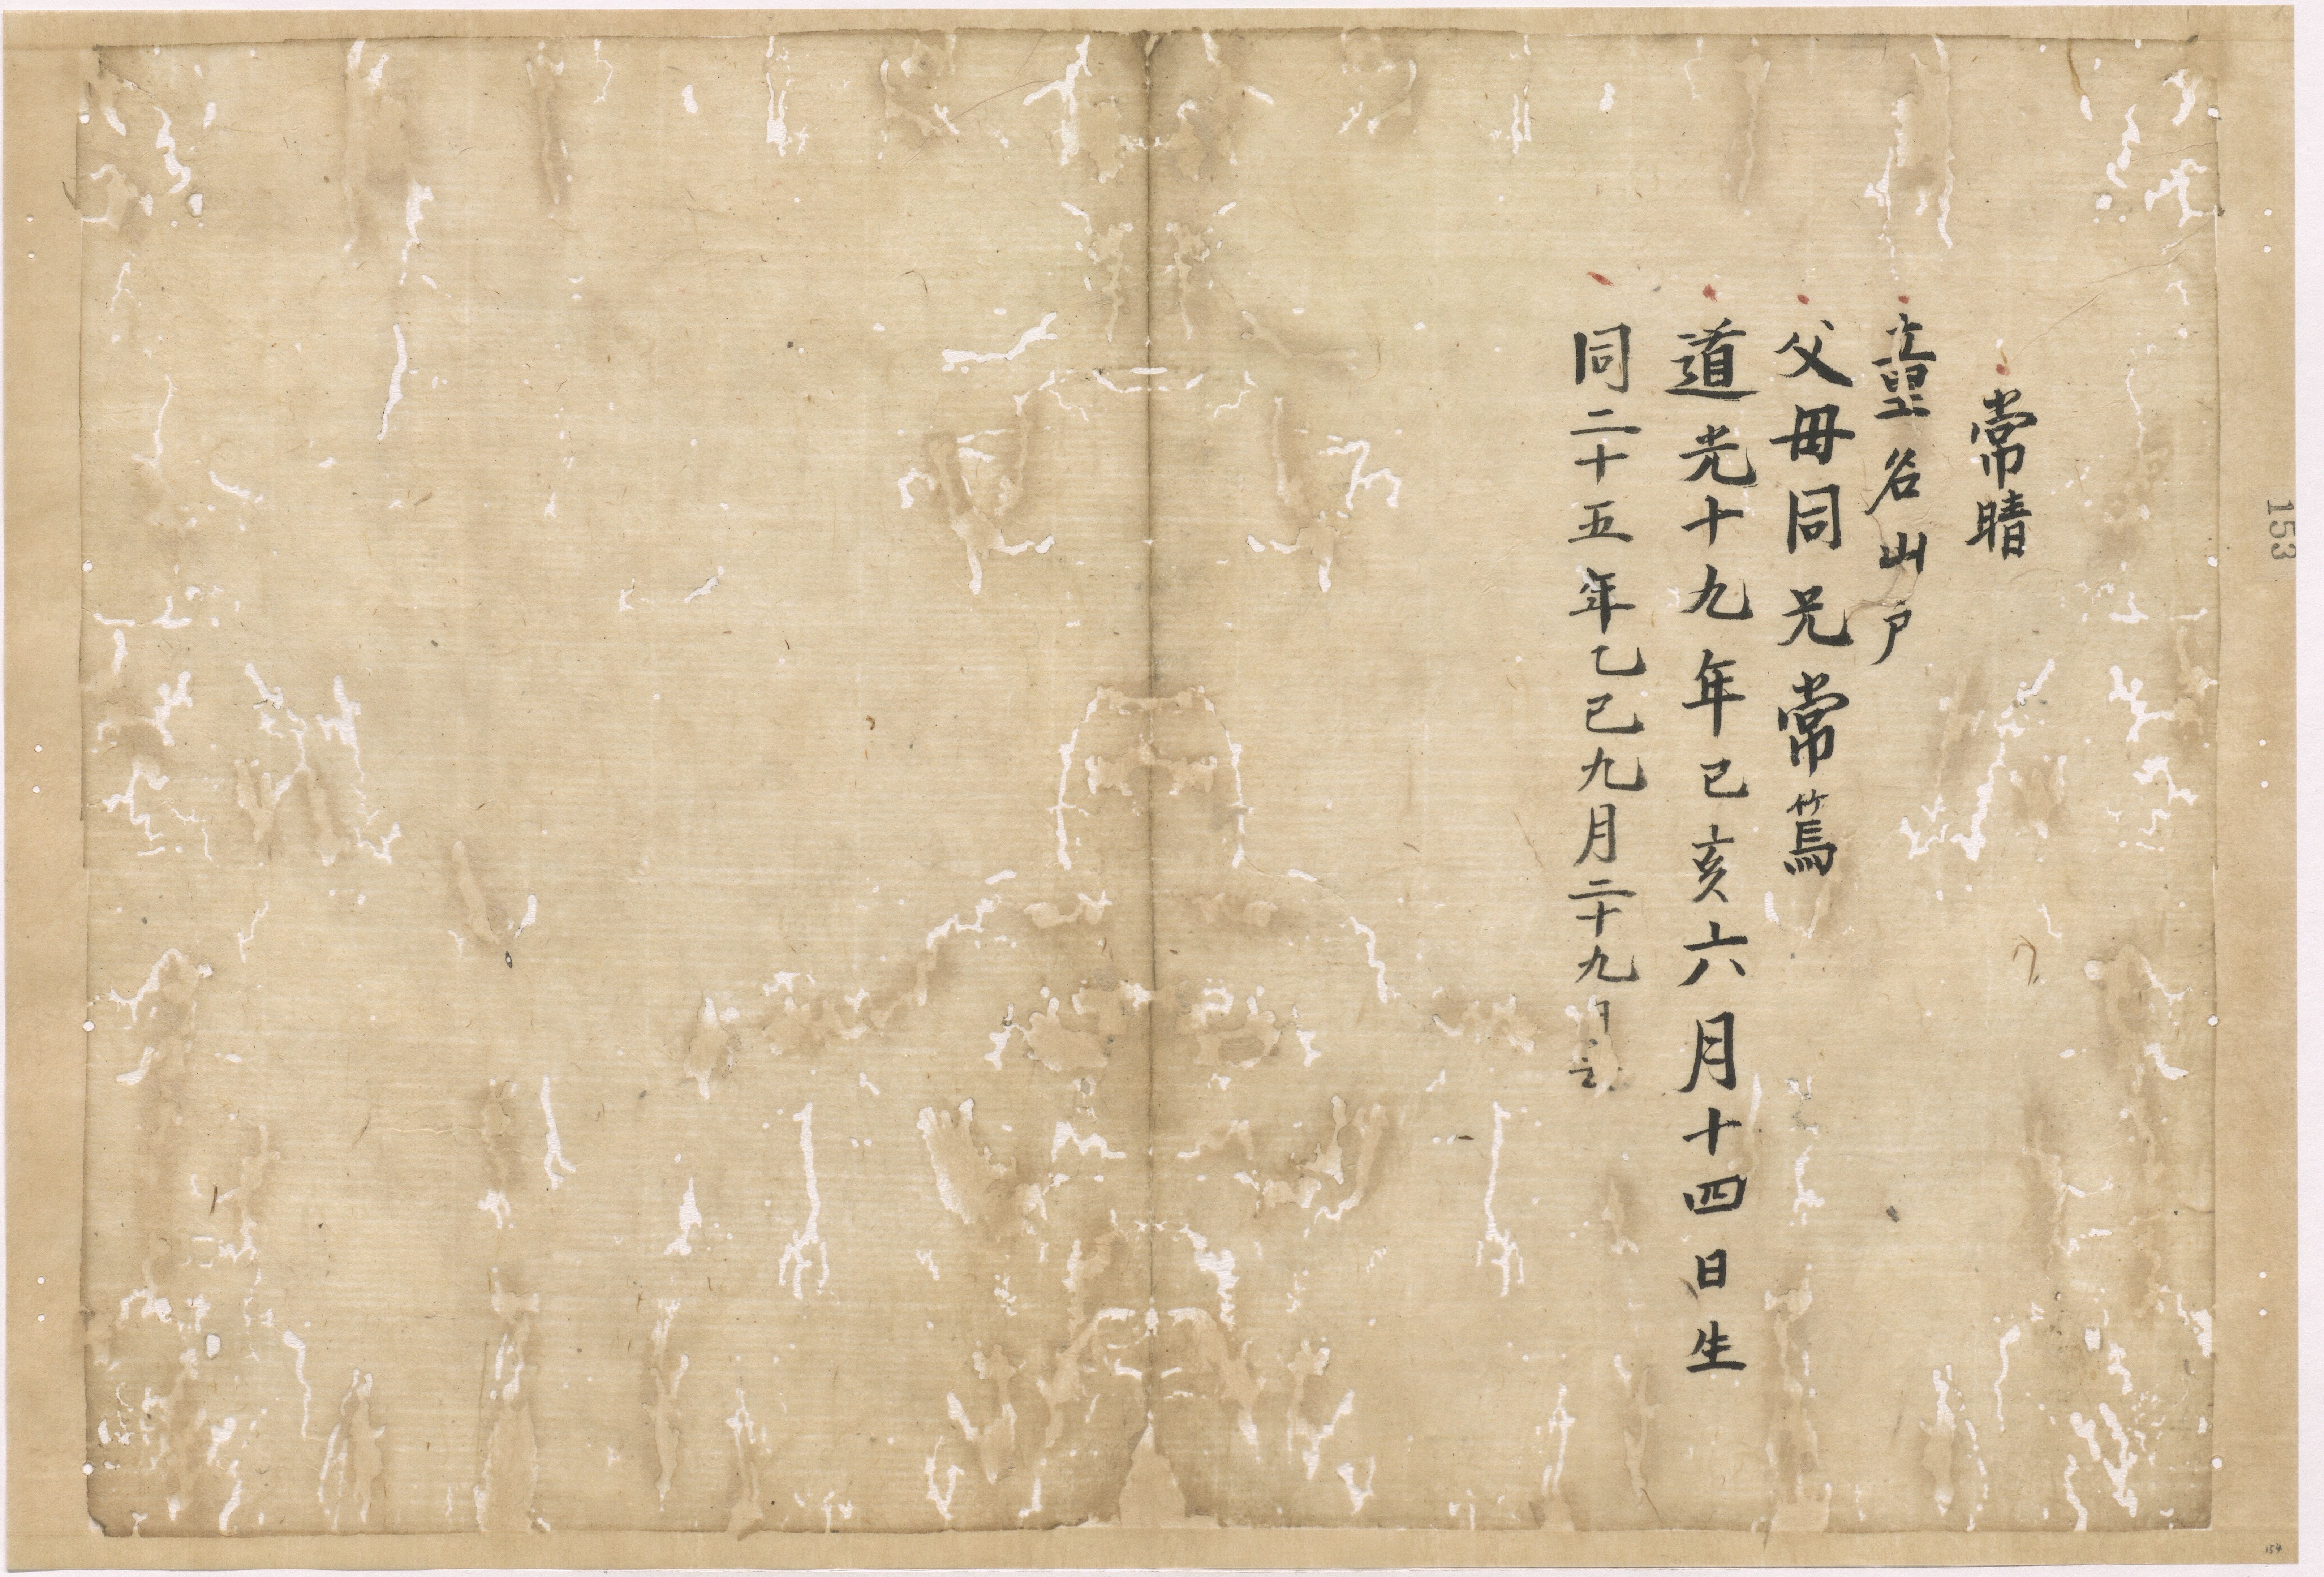 常晴
童名山戶
父母同兄常篤
道光十九年己亥六月十四日生
同二十五年乙巳九月二十九
153
154